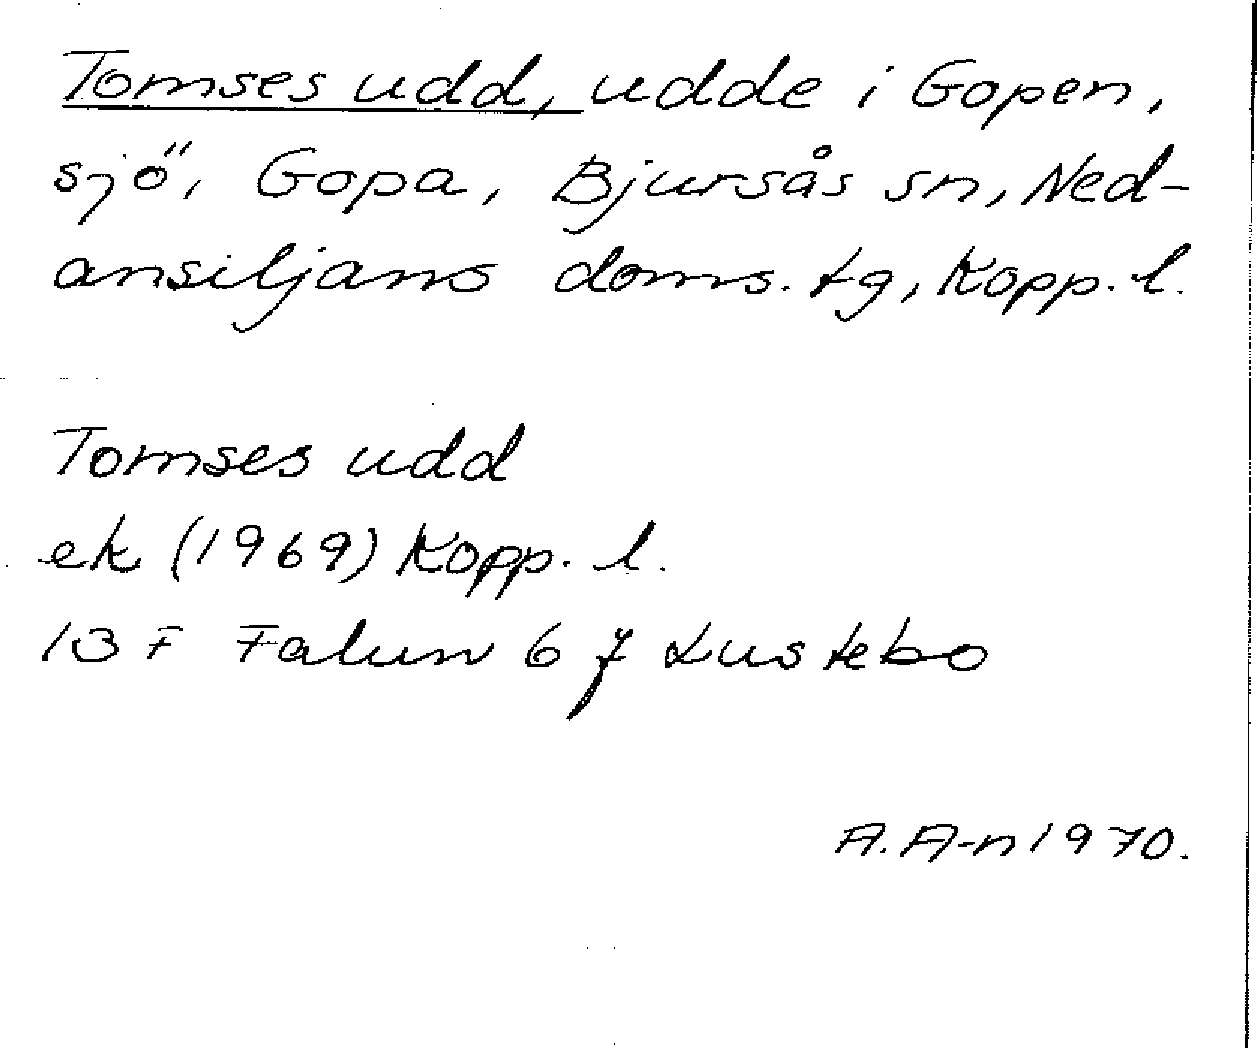 Tomses udd, udde i Gopen,
sjö, Gopa, Bjursås sn, Ned-
ansiljans doms. tg, Kopp. l.
Tomses udd
ek (1969) Kopp. l.
13 F Falun 6 f Lustebo
A. A-n 1970.